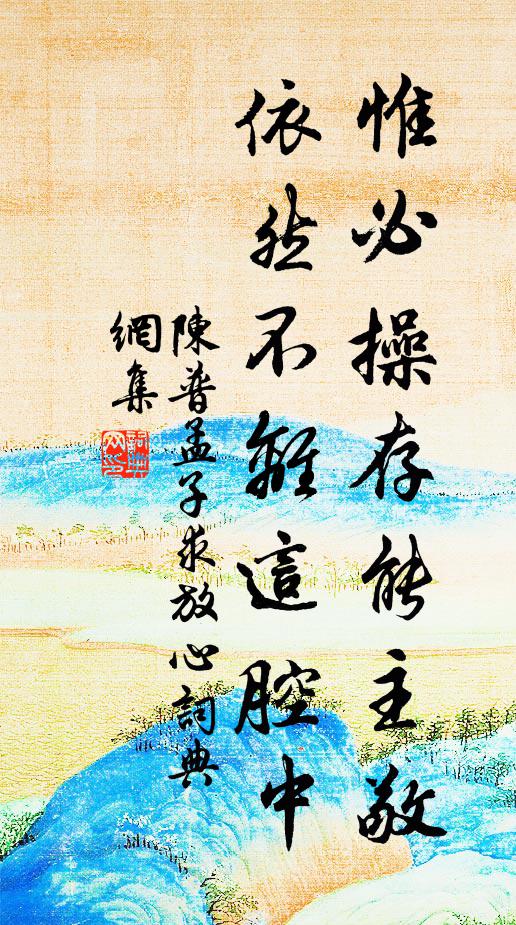 惟必操存能主敬
依然不離這腔中
陳普孟子求放心詞典
網集